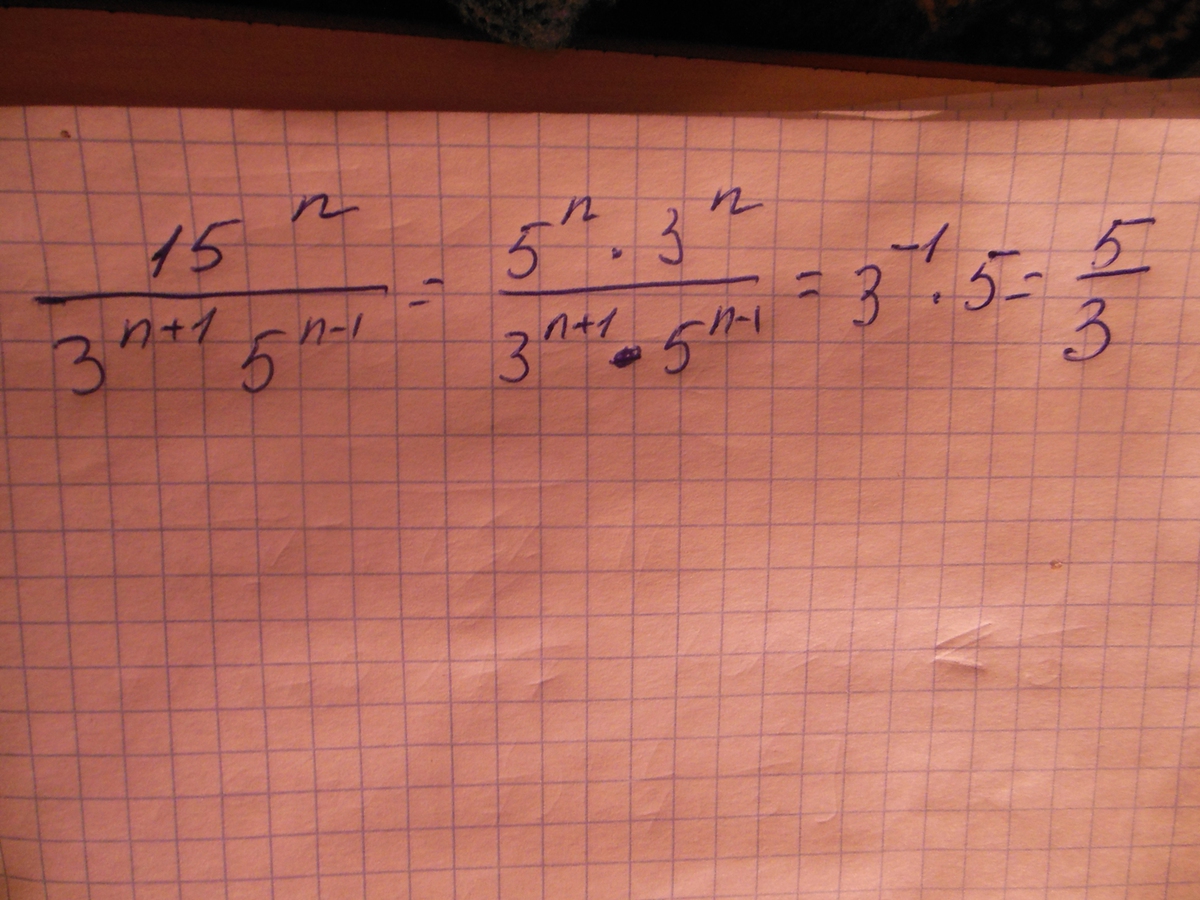 \frac{15^n}{3^{n+1} 5^{n-1}} = \frac{5^n \cdot 3^n}{3^{n+1} \cdot 5^{n-1}} = 3^{-1} \cdot 5 = \frac{5}{3}